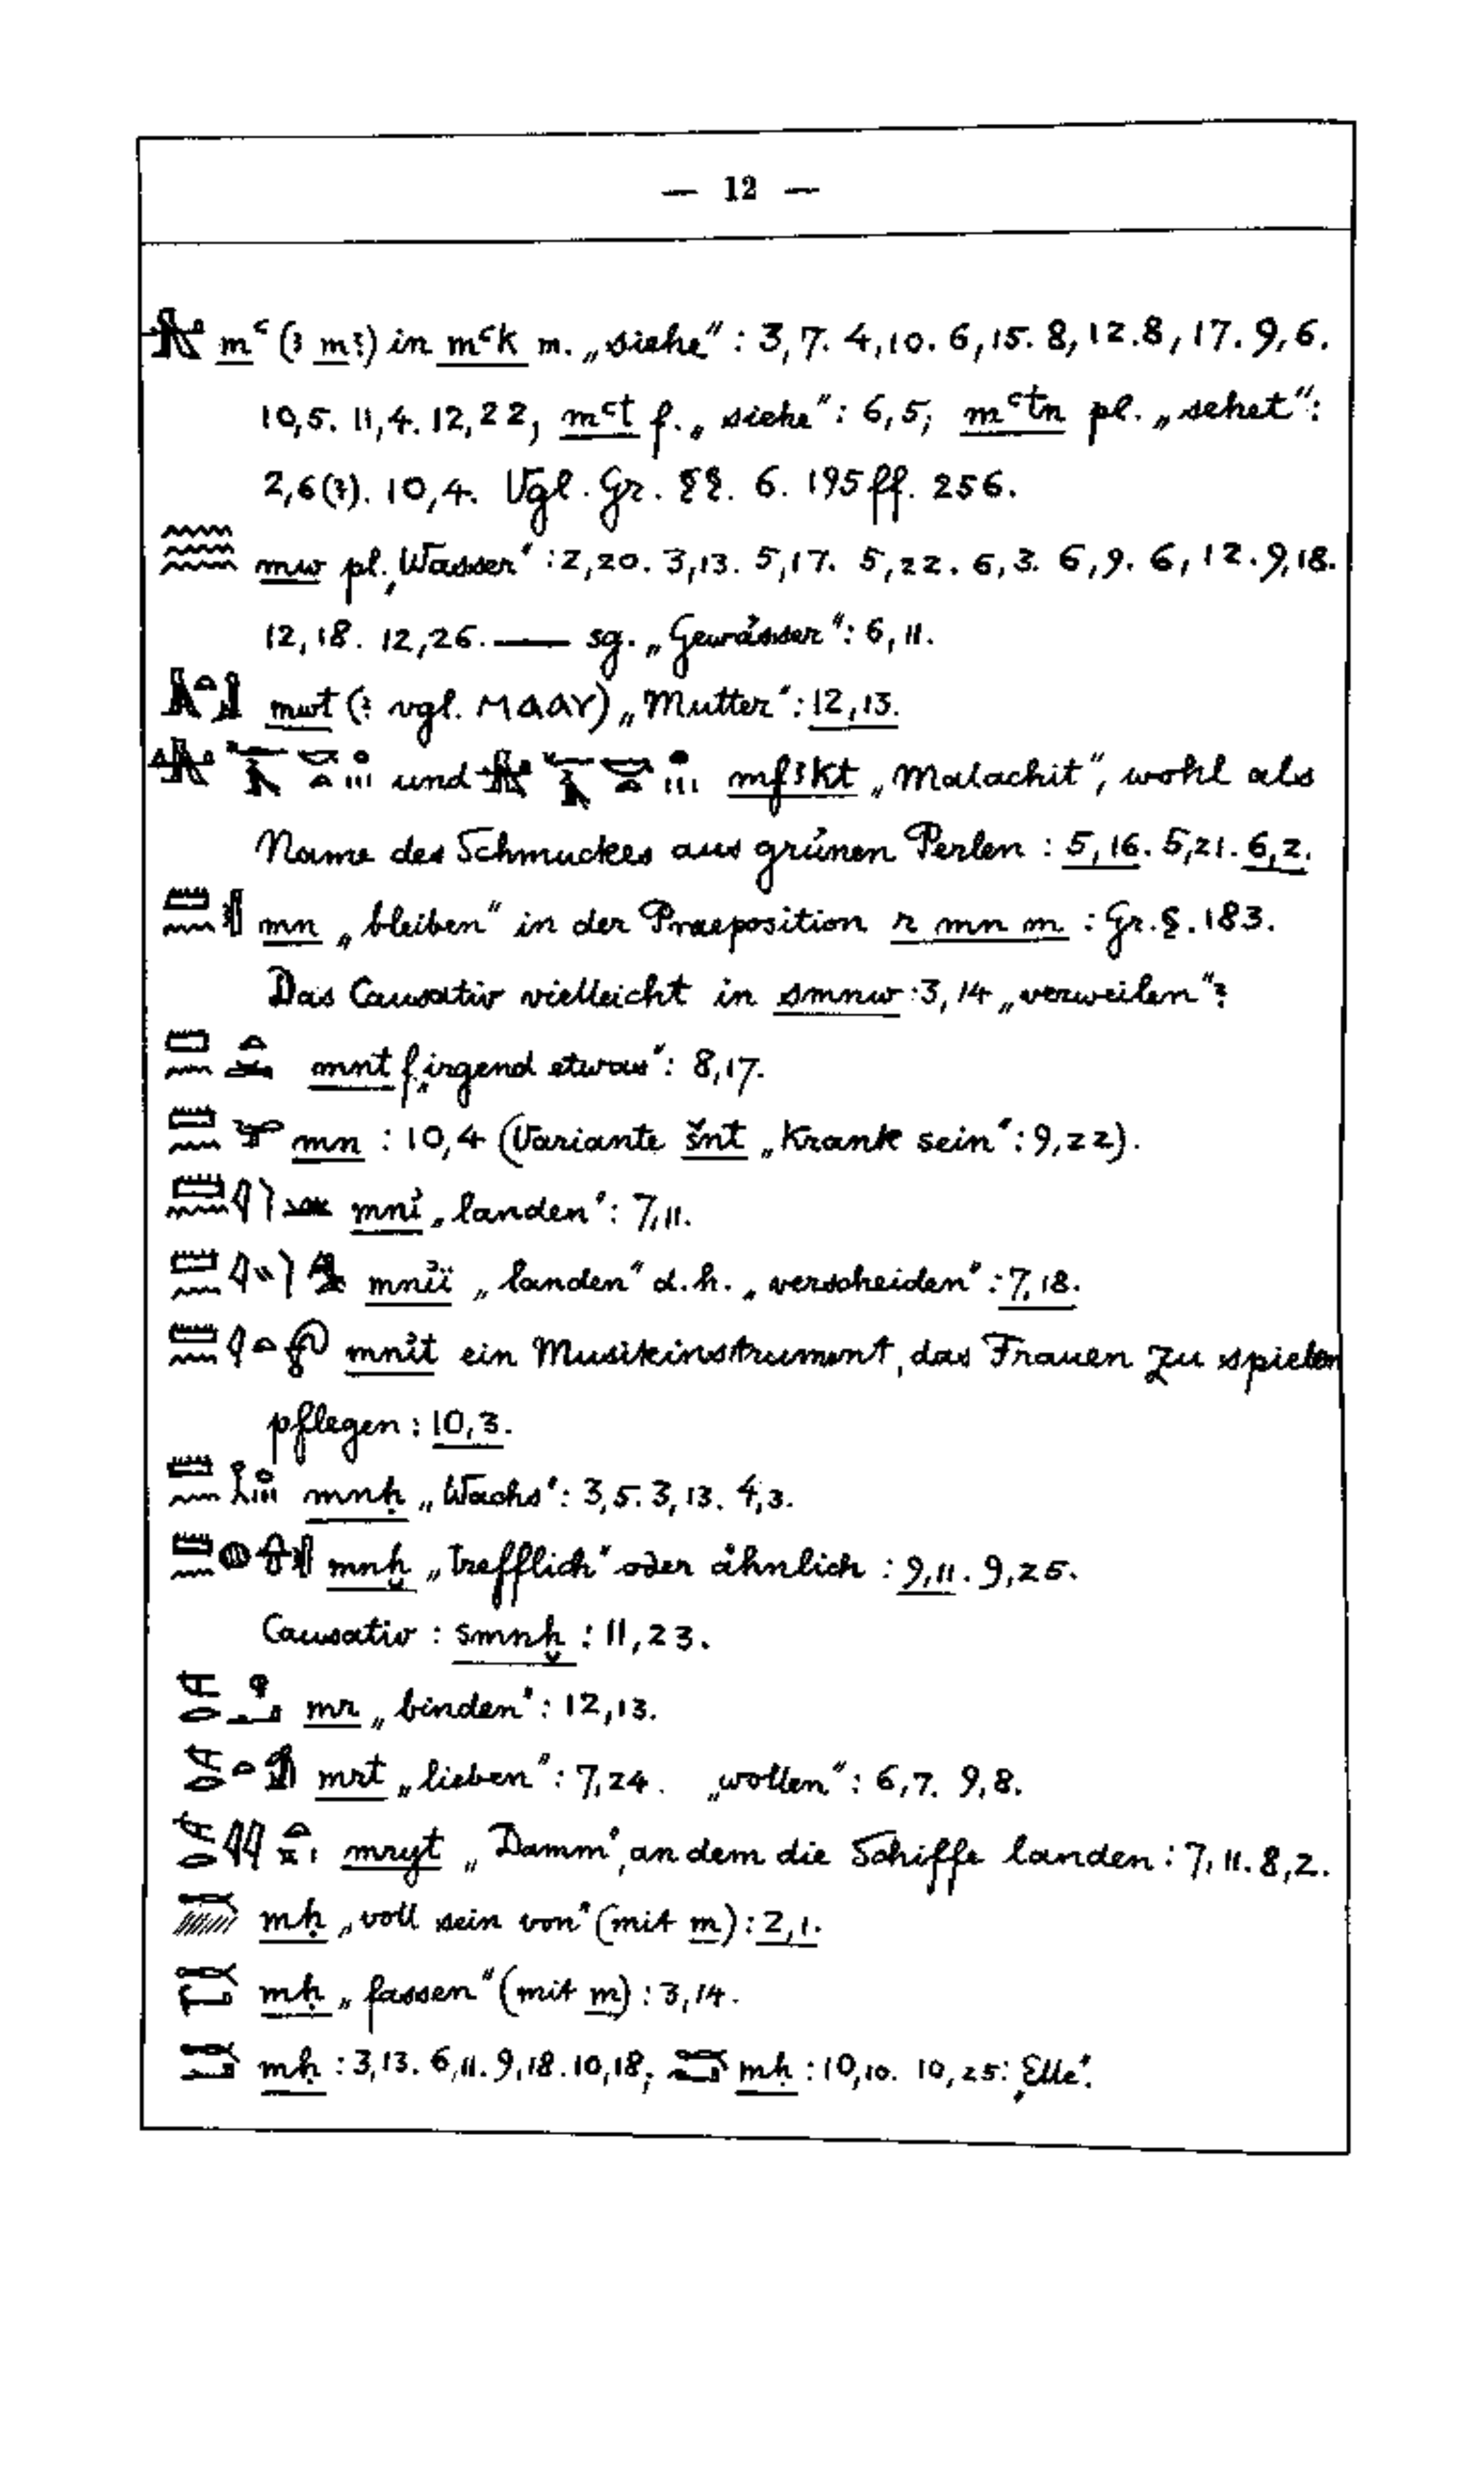 — 12 —
mꜥ (? m?) in mꜥk m. „siehe“: 3,7. 4,10. 6,15. 8,12. 8,17. 9,6.
10,5. 11,4. 12,22, mꜥt f. „siehe“: 6,5; mꜥtn pl. „sehet“:
2,6(?). 10,4. Vgl. Gr. §§. 6. 195ff. 256.
mw pl. „Wasser“: 2,20. 3,13. 5,17. 5,22. 6,3. 6,9. 6,12. 9,18.
12,18. 12,26. — sg. „Gewässer“: 6,11.
mwt (? vgl. ⲙⲁⲁⲩ) „Mutter“: 12,13.
und mfꜣkt „Malachit“, wohl als
Name des Schmuckes aus grünen Perlen : 5,16. 5,21. 6,2.
mn „bleiben“ in der Praeposition r mn m : Gr. §. 183.
Das Causativ vielleicht in smnw : 3,14 „verweilen“?
mnt f. „irgend etwas“: 8,17.
mn : 10,4 (Variante šnt „Krank sein“: 9,22).
mnỉ „landen“: 7,11.
mnỉï „landen“ d.h. „verscheiden“: 7,18.
mnỉt ein Musikinstrument, das Frauen zu spielen
pflegen : 10,3.
mnḥ „Wachs“: 3,5. 3,13. 4,3.
mnḫ „trefflich“ oder ähnlich : 9,11. 9,25.
Causativ : smnḫ : 11,23.
mr „binden“: 12,13.
mrt „lieben“: 7,24. „wollen“: 6,7. 9,8.
mryt „Damm“, an dem die Schiffe landen : 7,11. 8,2.
mḥ „voll sein von“ (mit m) : 2,1.
mḥ „fassen“ (mit m) : 3,14.
mḥ : 3,13. 6,11. 9,18. 10,18; mḥ : 10,10. 10,25: „Elle“.